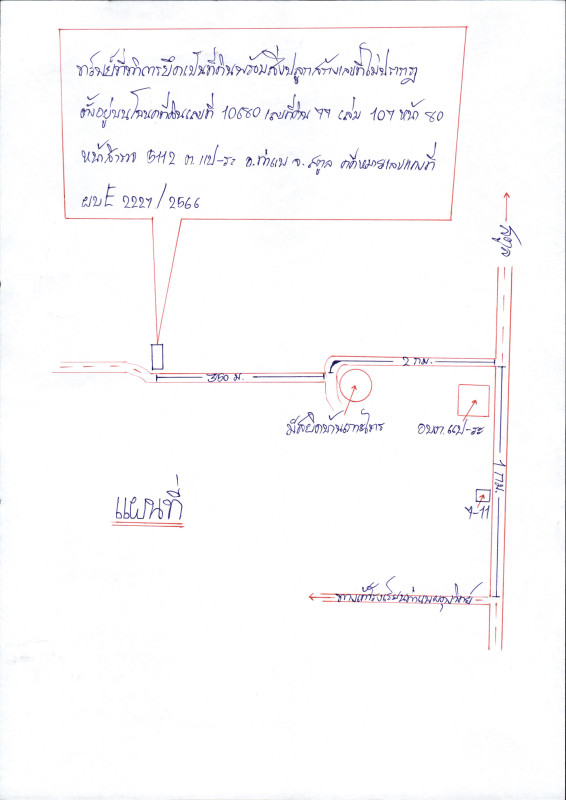 ทรัพย์ที่ทำการยึดเป็นที่ดินพร้อมสิ่งปลูกสร้างเลขที่ไม่ปรากฏ
ตั้งอยู่บนโฉนดที่ดินเลขที่ 10680 เลขที่ดิน 77 เล่ม 107 หน้า 80
หน้าสำรวจ 5112 ต. แป-ระ อ.ท่าแพ จ. สตูล คดีหมายเลขแดงที่
ผบE 2227/2566
สตูล
2 กม.
350 ม.
มัสยิดบ้าน
อบต.แป-ระ
1 กม.
7-11
แผนที่
ทางเข้าโรงเรียนท่าแพผดุงวิทย์